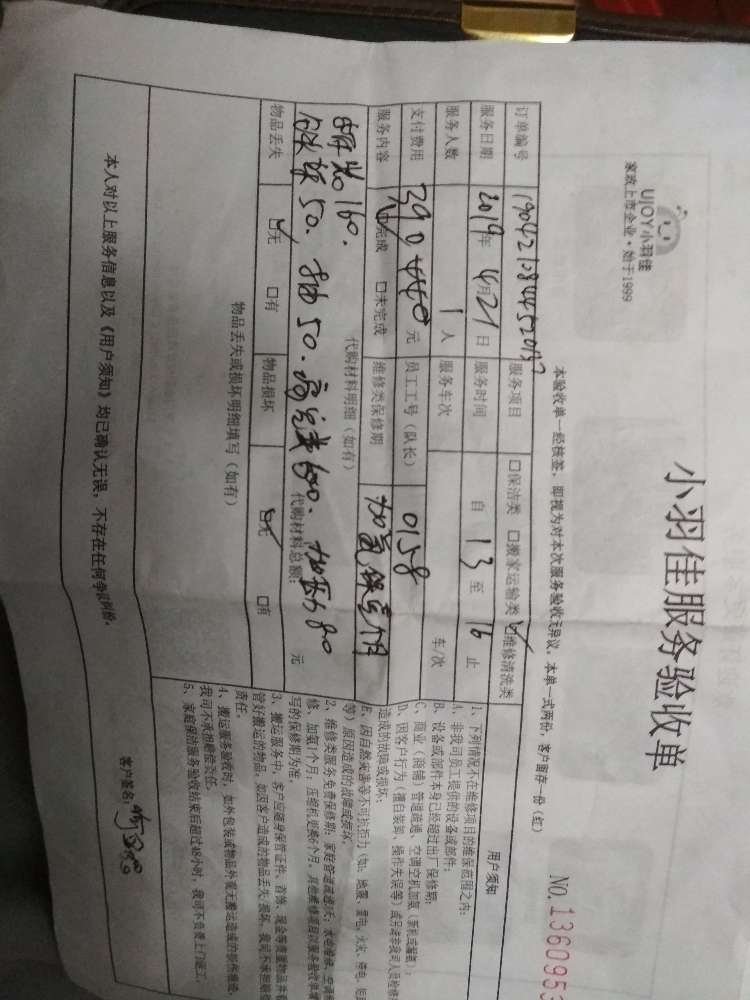 UJOY小羽佳
家政上市企业·始于1999
小羽佳服务验收单
NO.1360953
本验收单一经核签，即视为对本次服务验收无异议。本单一式两份，客户留存一份（红）
订单编号 服务项目 □保洁类 □搬家运输类 ☑维修清洗类
服务日期 2019年4月21日 服务时间 自 13 至 16 止
服务人数 1人 服务车次 车/次
支付费用 390 元 员工工号（队长） 0158
服务内容 ☑已完成 □未完成 维修类保修期
代购材料明细（如有）
160.
50. 50. 代购材料总额： 元
物品丢失 ☑无 □有 物品损坏 ☑无 □有
物品丢失或损坏明细填写（如有）
本人对以上服务信息以及《用户须知》均已确认无误，不存在任何争议纠纷。
用户须知
1、下列情况不在维修项目的维保范围之内：
A、非我司员工提供的设备或部件；
B、设备或部件本身已经超过出厂保修期；
C、商业（商铺）管道疏通、空调空机加氨（新机或漏氨）；
D、因客户行为（擅自装卸、操作失误等）或另请非我司人员检修
造成的故障或损坏；
E、因自然灾害等不可抗拒力（如：地震、雷电、火灾、停电
等）原因造成的故障或损坏。
2、维修类服务免费保修期：家庭管道疏通
修、加氨1个月，压缩机更换6个月，其他维修项目以服务验收单
写的保修期为准。
3、搬运服务中，客户应随身保管证件、首饰、现金等贵重物品并
管好搬运的物品，如因客户造成的物品丢失/损坏，我司不承担赔偿
责任。
4、搬运服务验收时，如外包装或物品外观无搬运造成的损伤痕迹，
我司不承担赔偿责任。
5、家庭保洁服务验收结束后超过48小时，我司不负责上门返工。
客户签名：